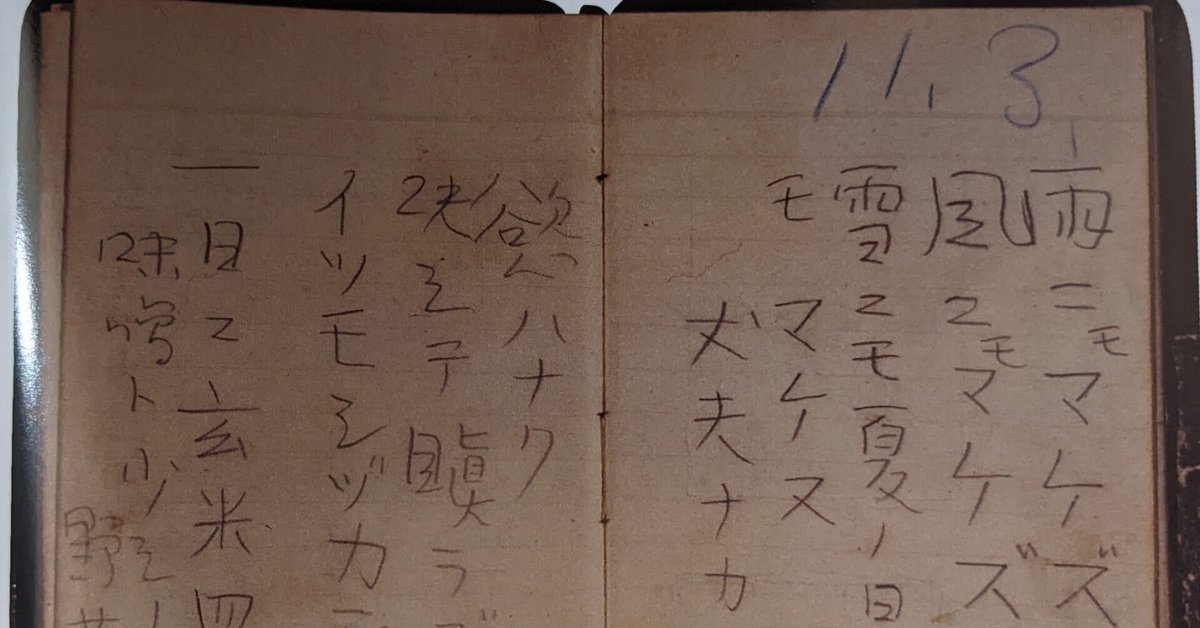 11.3
雨ニモマケズ
風ニモマケズ
雪ニモ夏ノ
モマケヌ
丈夫ナカ
慾ハナク
決シテ瞋ラ
イツモシヅカ
一日ニ玄米四
味噌ト少シ
野